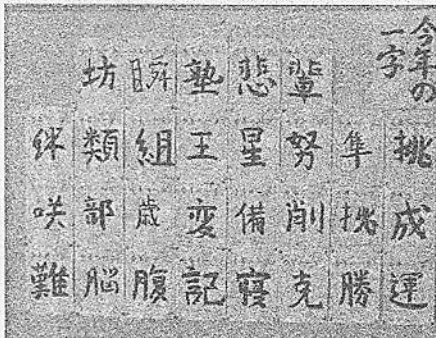 今年の
一字
挑成運
隼挑勝
輩努削克
悲星備寝
塾王変記
瞬組歳腹
坊類部脳
絆咲難